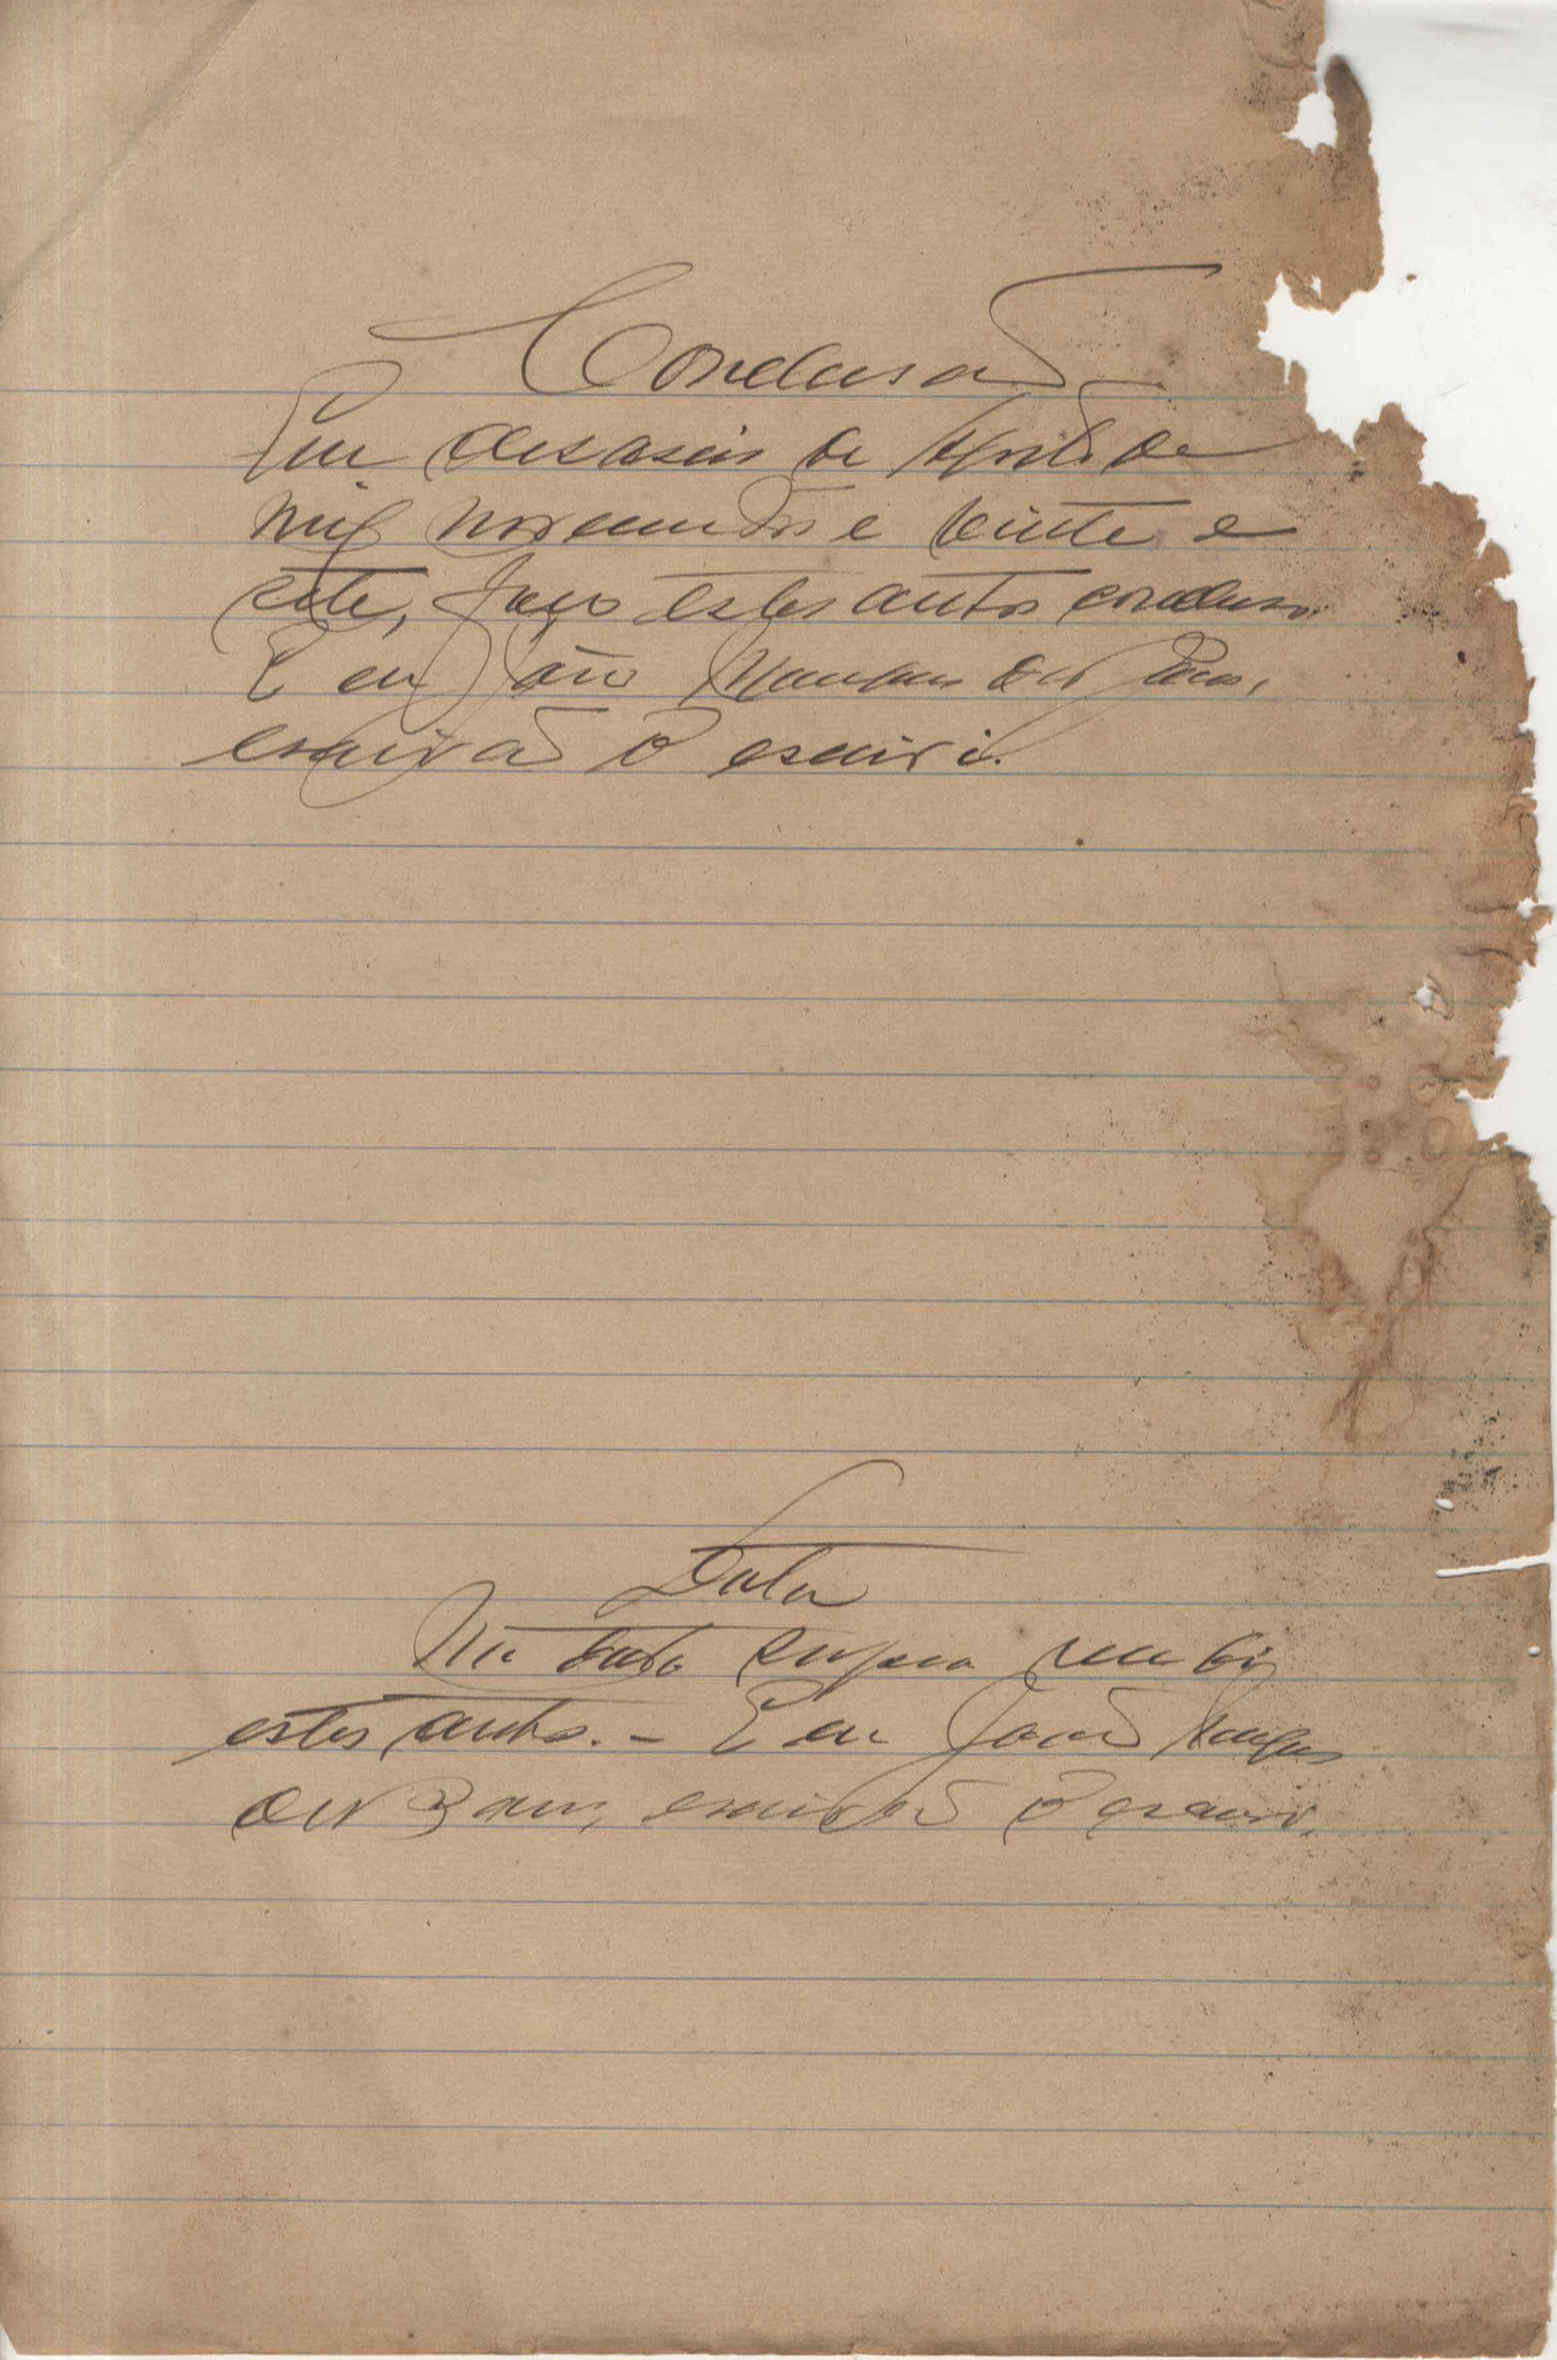 Conclusão
Em desaseis de Abril de
mil novecentos e vinte e
sete, faço estes autos conclusos.
E eu João Marques dos
escrivão o escrivi.
Data
Na data supra recebi
estes autos. - E eu João Marques
dos escrivão o escrivi.